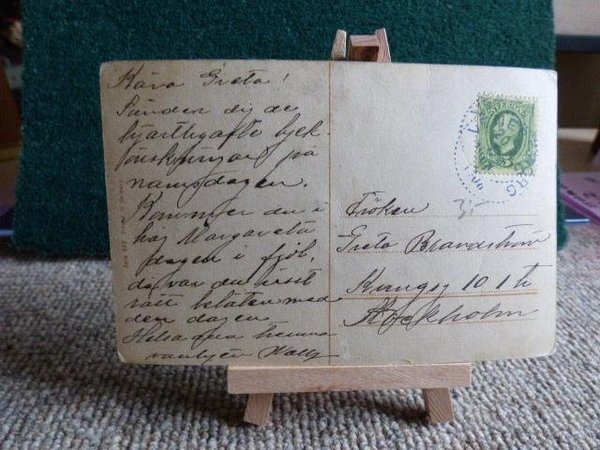 Kära Greta!
Sänder dig de
hjärtligaste lyck
önskningar på
namnsdagen.
Kommer du i
håg Margareta
dagen i fjol,
da var du visst
rätt belåten med
den dagen
Helsa alla hemma
vänligen
Fröken
3:-
Greta Brandström
Kungsg 10 1 tr
Stockholm